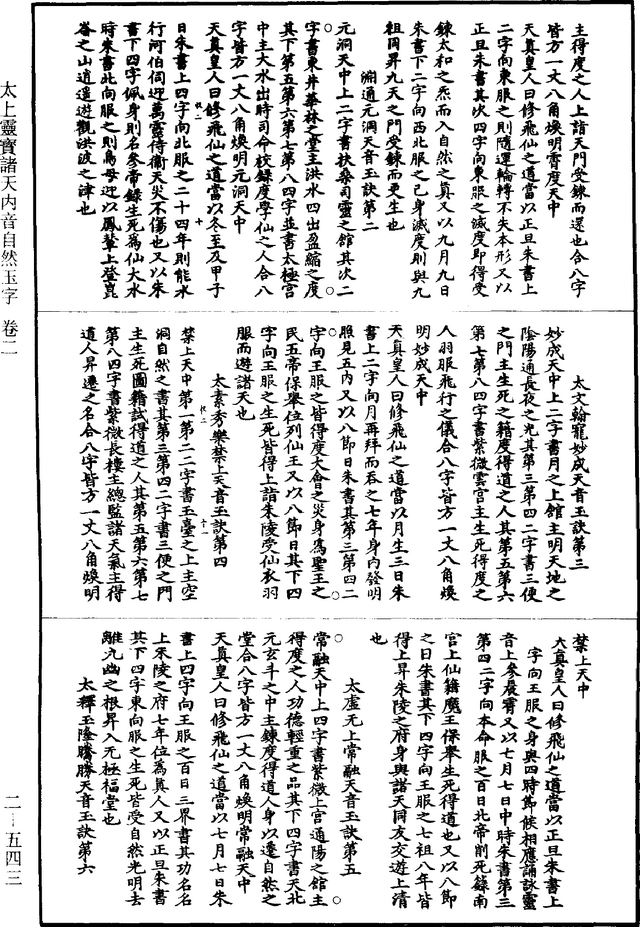 太上靈寶諸天內音自然玉字 卷二
二—五四三
主得度之人上詣天門受鍊而還也合八字
皆方一丈八角煥明霄度天中
天真皇人曰修飛仙之道當以正旦朱書上
二字向東服之則隨運輪轉不失本形又以
正旦朱書其次四字向東服之滅度即得受
鍊太和之炁而入自然之真又以九月九日
朱書下二字向西北服之己身滅度則與九
祖同昇九天之門受鍊而更生也
淵通元洞天音玉訣第二
元洞天中上二字書扶桑司靈之館其次二
字書東井華林之堂主洪水四出盈縮之度
其下第五第六第七第八四字並書太極宮
中主大水出時司命校錄度學仙之人合八
字皆方一丈八角煥明元洞天中
天真皇人曰修飛仙之道當以冬至及甲子
日朱書上四字向北服之二十四年則能水
行河伯伺迎萬靈侍衛天災不傷也又以朱
書下四字佩身則名參帝錄生死為仙大水
時朱書此向服之則鳥母迎以鳳輦上登崑
崙之山逍遙遊觀洪波之津也
太文翰寵妙成天音玉訣第三
妙成天中上二字書月之上館主明天地之
陰陽通長夜之光其第三第四二字書三便
之門主生死之籍度得道之人其第五第六
第七第八四字書紫微雲宮主生死得度之
人羽服飛行之儀合八字皆方一丈八角煥
明妙成天中
天真皇人曰修飛仙之道當以月生三日朱
書上二字向月再拜而吞之七年身內發明
照見五內又以八節日朱書其第三第四二
字向王服之皆得度大會之災身為聖王之
民五帝保舉位列仙王又以八節日其下四
字向王服之生死皆得上詣朱陵受仙衣羽
服而遊諸天也
太素秀樂禁上天音玉訣第四
禁上天中第一第二二字書玉臺之上主空
洞自然之書其第三第四二字書三便之門
主生死圖籍試得道之人其第五第六第七
第八四字書紫微長樓主總監諸天氣主得
道人昇遷之名合八字皆方一丈八角煥明
禁上天中
天真皇人曰修飛仙之道當以正旦朱書上
字向王服之身與四時節候相應誦詠靈
音上參晨霄又以七月七日中時朱書第三
第四二字向本命服之百日北帝削死錄南
宮上仙籍魔王保舉生死得道也又以八節
之日朱書其下四字向王服之七祖八年皆
得上昇朱陵之府身與諸天同友交遊上清
也
太虛无上常融天音玉訣第五
常融天中上四字書紫微上宮通陽之館主
得度之人功德輕重之品其下四字書天北
元玄斗之中主鍊度得道人身以還自然之
堂合八字皆方一丈八角煥明常融天中
天真皇人曰修飛仙之道當以七月七日朱
書上四字向王服之百日三界書其功名名
上朱陵之府七年位為真人又以正旦朱書
其下四字東向服之生死皆受自然光明去
離九幽之根昇入无極福堂也
太釋玉隆騰勝天音玉訣第六